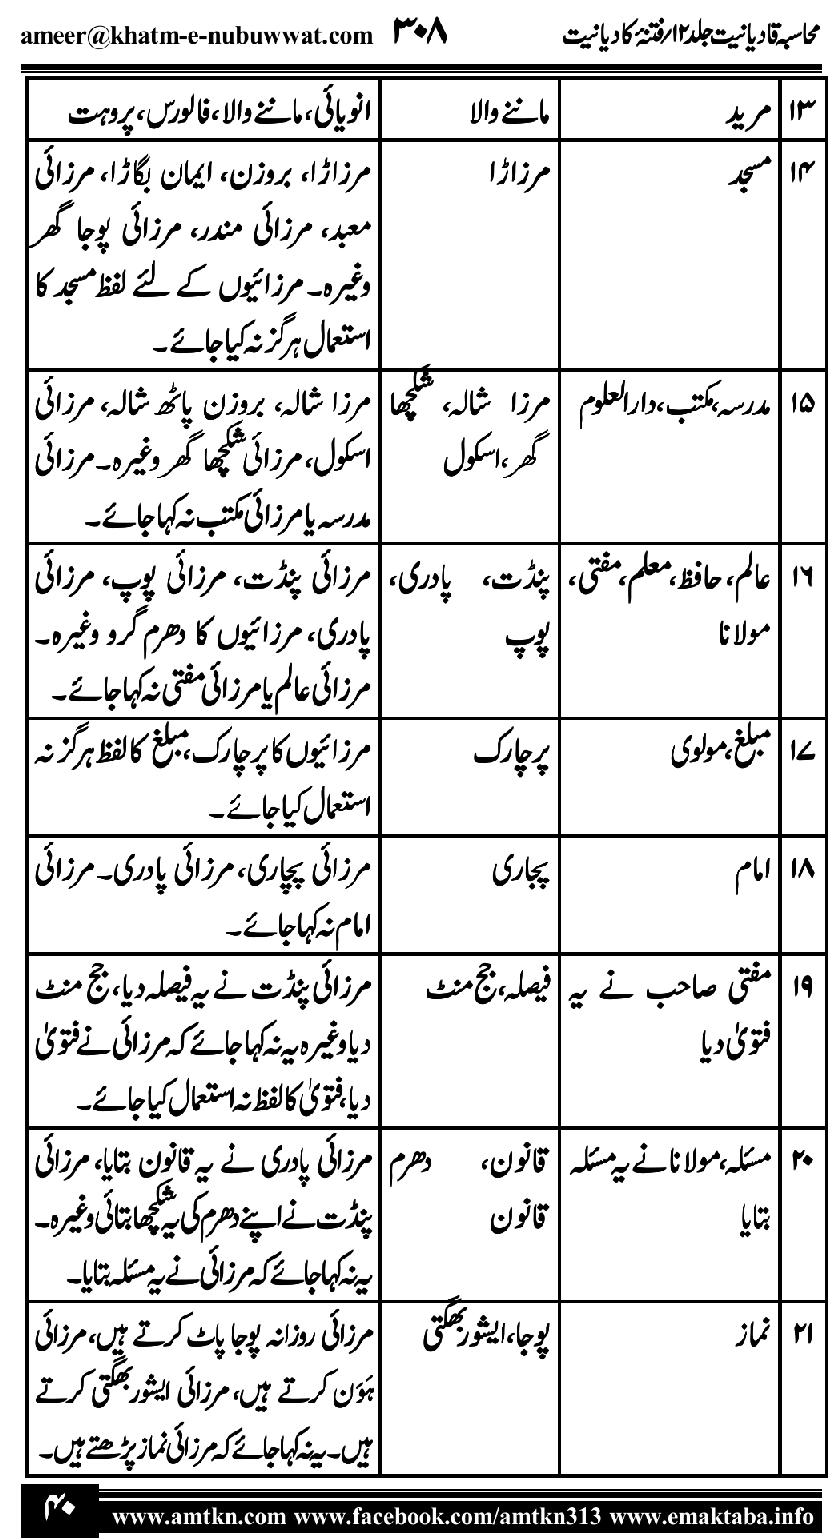 محاسبہ قادیانیت جلد ۱۲/ فتنۂ کادیانیت ۳۰۸ ameer@khatm-e-nubuwwat.com
۱۳ مرید ماننے والا انویائی، ماننے والا، فالورس، پروہت
۱۴ مسجد مرزاڑا مرزاڑا، بروزن، ایمان بگاڑا، مرزائی
معبد، مرزائی مندر، مرزائی پوجا گھر
وغیرہ۔ مرزائیوں کے لئے لفظ مسجد کا
استعمال ہرگز نہ کیا جائے۔
۱۵ مدرسہ، مکتب، دارالعلوم مرزا شالہ، شکچھا مرزا شالہ، بروزن پاٹھ شالہ، مرزائی
گھر، اسکول اسکول، مرزائی شکچھا گھر وغیرہ۔ مرزائی
مدرسہ یا مرزائی مکتب نہ کہا جائے۔
۱۶ عالم، حافظ، معلم، مفتی، پنڈت، پادری، مرزائی پنڈت، مرزائی پوپ، مرزائی
مولانا پوپ پادری، مرزائیوں کا دھرم گرو وغیرہ۔
مرزائی عالم یا مرزائی مفتی نہ کہا جائے۔
۱۷ مبلغ، مولوی پرچارک مرزائیوں کا پرچارک، مبلغ کا لفظ ہرگز نہ
استعمال کیا جائے۔
۱۸ امام پجاری مرزائی پجاری، مرزائی پادری۔ مرزائی
امام نہ کہا جائے۔
۱۹ مفتی صاحب نے یہ فیصلہ، جج منٹ مرزائی پنڈت نے یہ فیصلہ دیا، جج منٹ
فتویٰ دیا دیا وغیرہ یہ نہ کہا جائے کہ مرزائی نے فتویٰ
دیا، فتویٰ کا لفظ نہ استعمال کیا جائے۔
۲۰ مسئلہ، مولانا نے یہ مسئلہ قانون، دھرم مرزائی پادری نے یہ قانون بتایا، مرزائی
بتایا قانون پنڈت نے اپنے دھرم کی یہ شکچھا بتائی وغیرہ۔
یہ نہ کہا جائے کہ مرزائی نے یہ مسئلہ بتایا۔
۲۱ نماز پوجا، ایشور بھگتی مرزائی روزانہ پوجا پاٹ کرتے ہیں، مرزائی
ہَوَن کرتے ہیں، مرزائی ایشور بھگتی کرتے
ہیں۔ یہ نہ کہا جائے کہ مرزائی نماز پڑھتے ہیں۔
۴۰ www.amtkn.com www.facebook.com/amtkn313 www.emaktaba.info